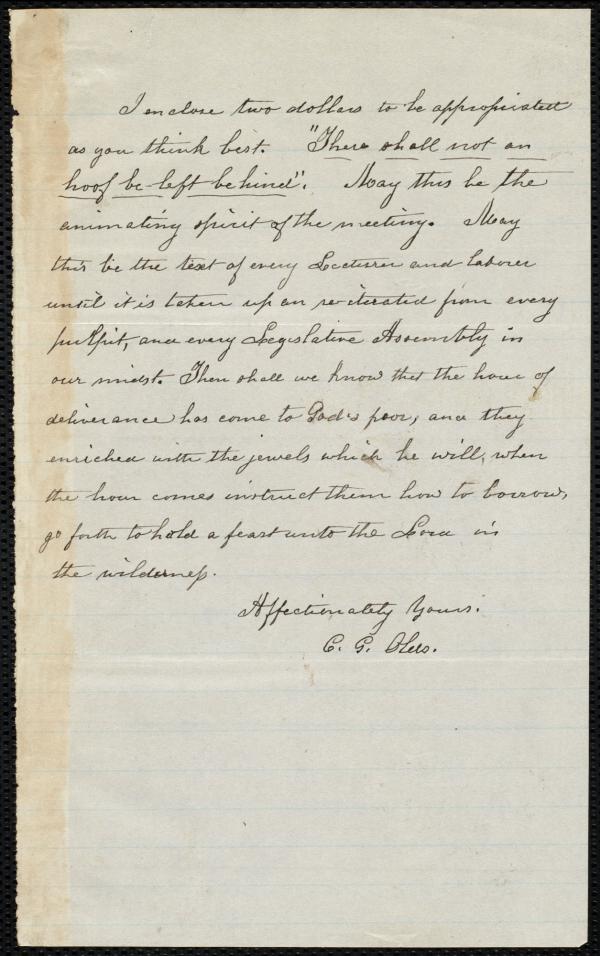 I enclose two dollars to be appropriated
as you think best. "There shall not an
hoof be left behind". May this be the
animating spirit of the meeting. May
this be the text of every Lecturer and laborer
until it is taken up an re-iterated from every
pulpit, and every Legislative Assembly in
our midst. Then shall we know that the hour of
deliverance has come to God's poor, and they
enriched with the jewels which he will, when
the hour comes instruct them how to borrow,
go forth to hold a feast unto the Lord in
the wilderness.
Affectionately Yours.
C. G. Olds.